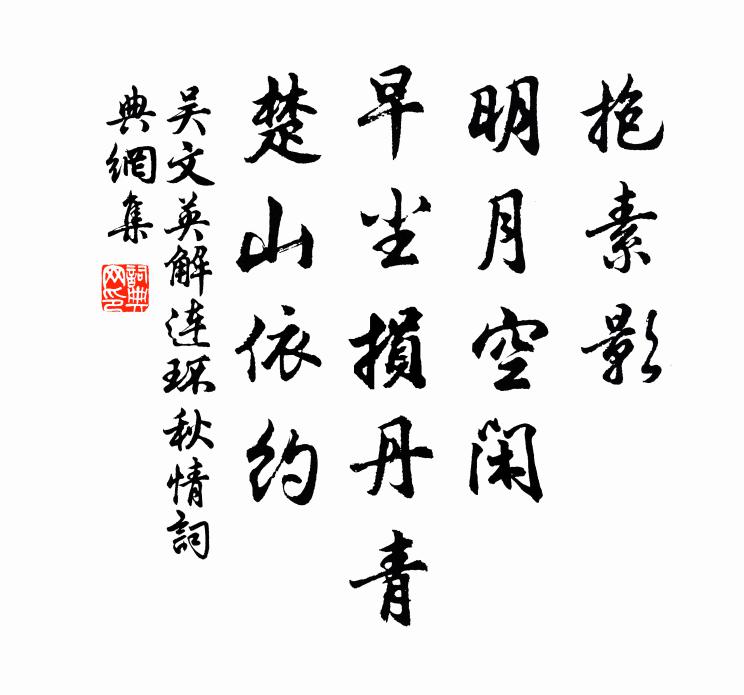 抱素影
明月空闲
早尘損丹青
楚山依约
吴文英解连环秋情詞
典網集
詞典网印